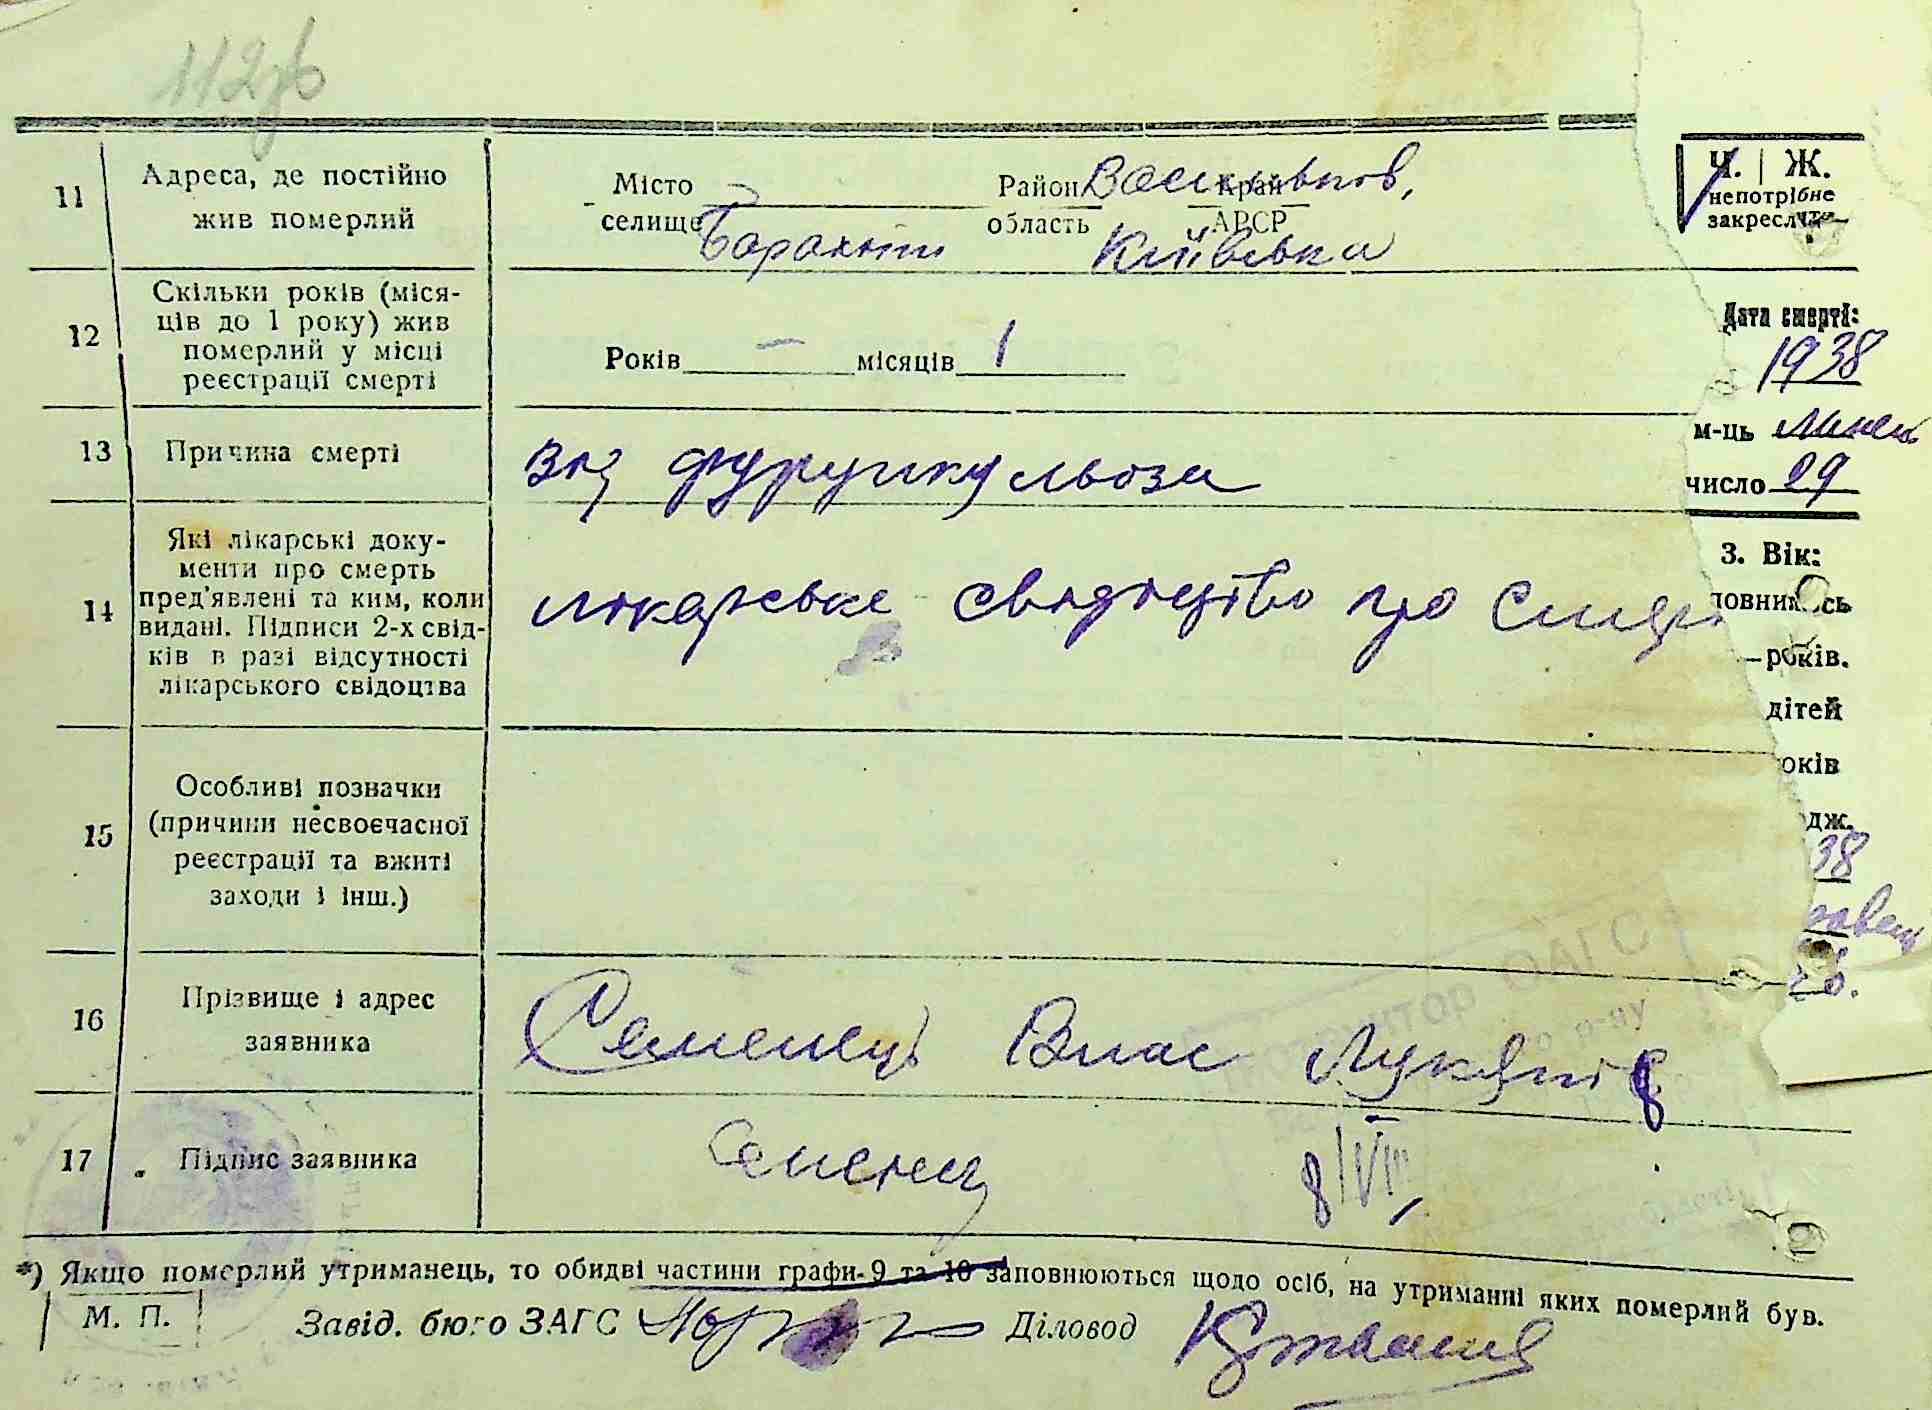 112зв
11 Адреса, де постійно жив померлий
Місто
селище Барахти
Район Васильков,
область Київська
Край
АРСР
12 Скільки років (міся-
ців до 1 року) жив
померлий у місці
реєстрації смерті
Років — місяців 1
13 Причина смерті
від фурункульоза
14 Які лікарські доку-
менти про смерть
пред'явлені та ким, коли
видані. Підписи 2-х свід-
ків в разі відсутності
лікарського свідоцтва
лікарське свидоцтво про смер
15 Особливі позначки
(причини несвоєчасної
реєстрації та вжиті
заходи і інш.)
16 Прізвище і адрес
заявника
Семенець Влас Лукянів
17 Підпис заявника
Семенец
8/VIII
*) Якщо померлий утриманець, то обидві частини графи 9 та 10 заповнюються щодо осіб, на утриманні яких померлий був.
М. П.
Завід. бюро ЗАГС
Діловод
Ч. | Ж.
непотрібне
закреслити
Дата смерті:
1938
м-ць липень
число 29
3. Вік:
повнилось
— років.
дітей
оків
одж.
38
равень
26.